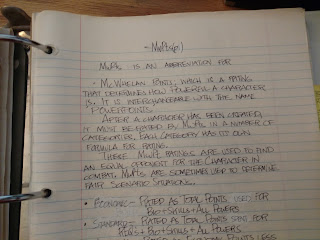 - MWPts(p)
MWPts IS AN ABBREVIATION FOR
- MCWHELAN POINTS, WHICH IS A RATING
THAT DETERMINES HOW POWERFUL A CHARACTER
IS. IT IS INTERCHANGEABLE WITH THE NAME
POWERPOINTS.
AFTER A CHARACTER HAS BEEN CREATED,
IT MUST BE RATED BY MWPts IN A NUMBER OF
CATEGORIES. EACH CATEGORY HAS ITS OWN
FORMULA FOR RATING.
THESE MWPt RATINGS ARE USED TO FIND
AN EQUAL OPPONENT FOR THE CHARACTER IN
COMBAT. MWPts ARE SOMETIMES USED TO DETERMINE
FAIR SCENARIO SITUATIONS.
• ECONOMIC - RATED AS TOTAL POINTS USED FOR
BIO + SKILLS + ALL POWERS
• STANDARD - RATED AS TOTAL POINTS SPENT FOR
+ SKILLS + ALL POWERS
POINTS LESS